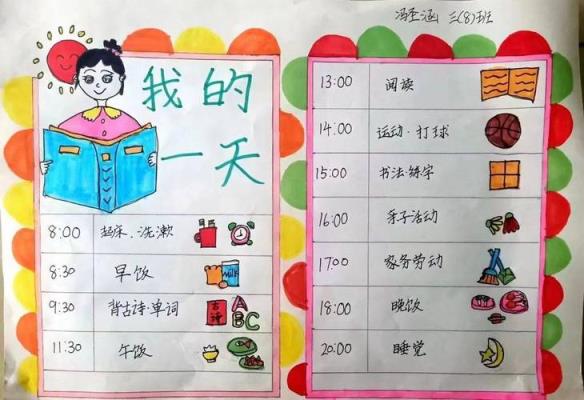 冯圣涵 三(8)班
我的
一天
8:00 起床、洗漱
8:30 早饭
9:30 背古诗·单词
古诗
A
BC
11:30 午饭
13:00 阅读
14:00 运动·打球
15:00 书法·练字
16:00 亲子活动
17:00 家务劳动
18:00 晚饭
20:00 睡觉